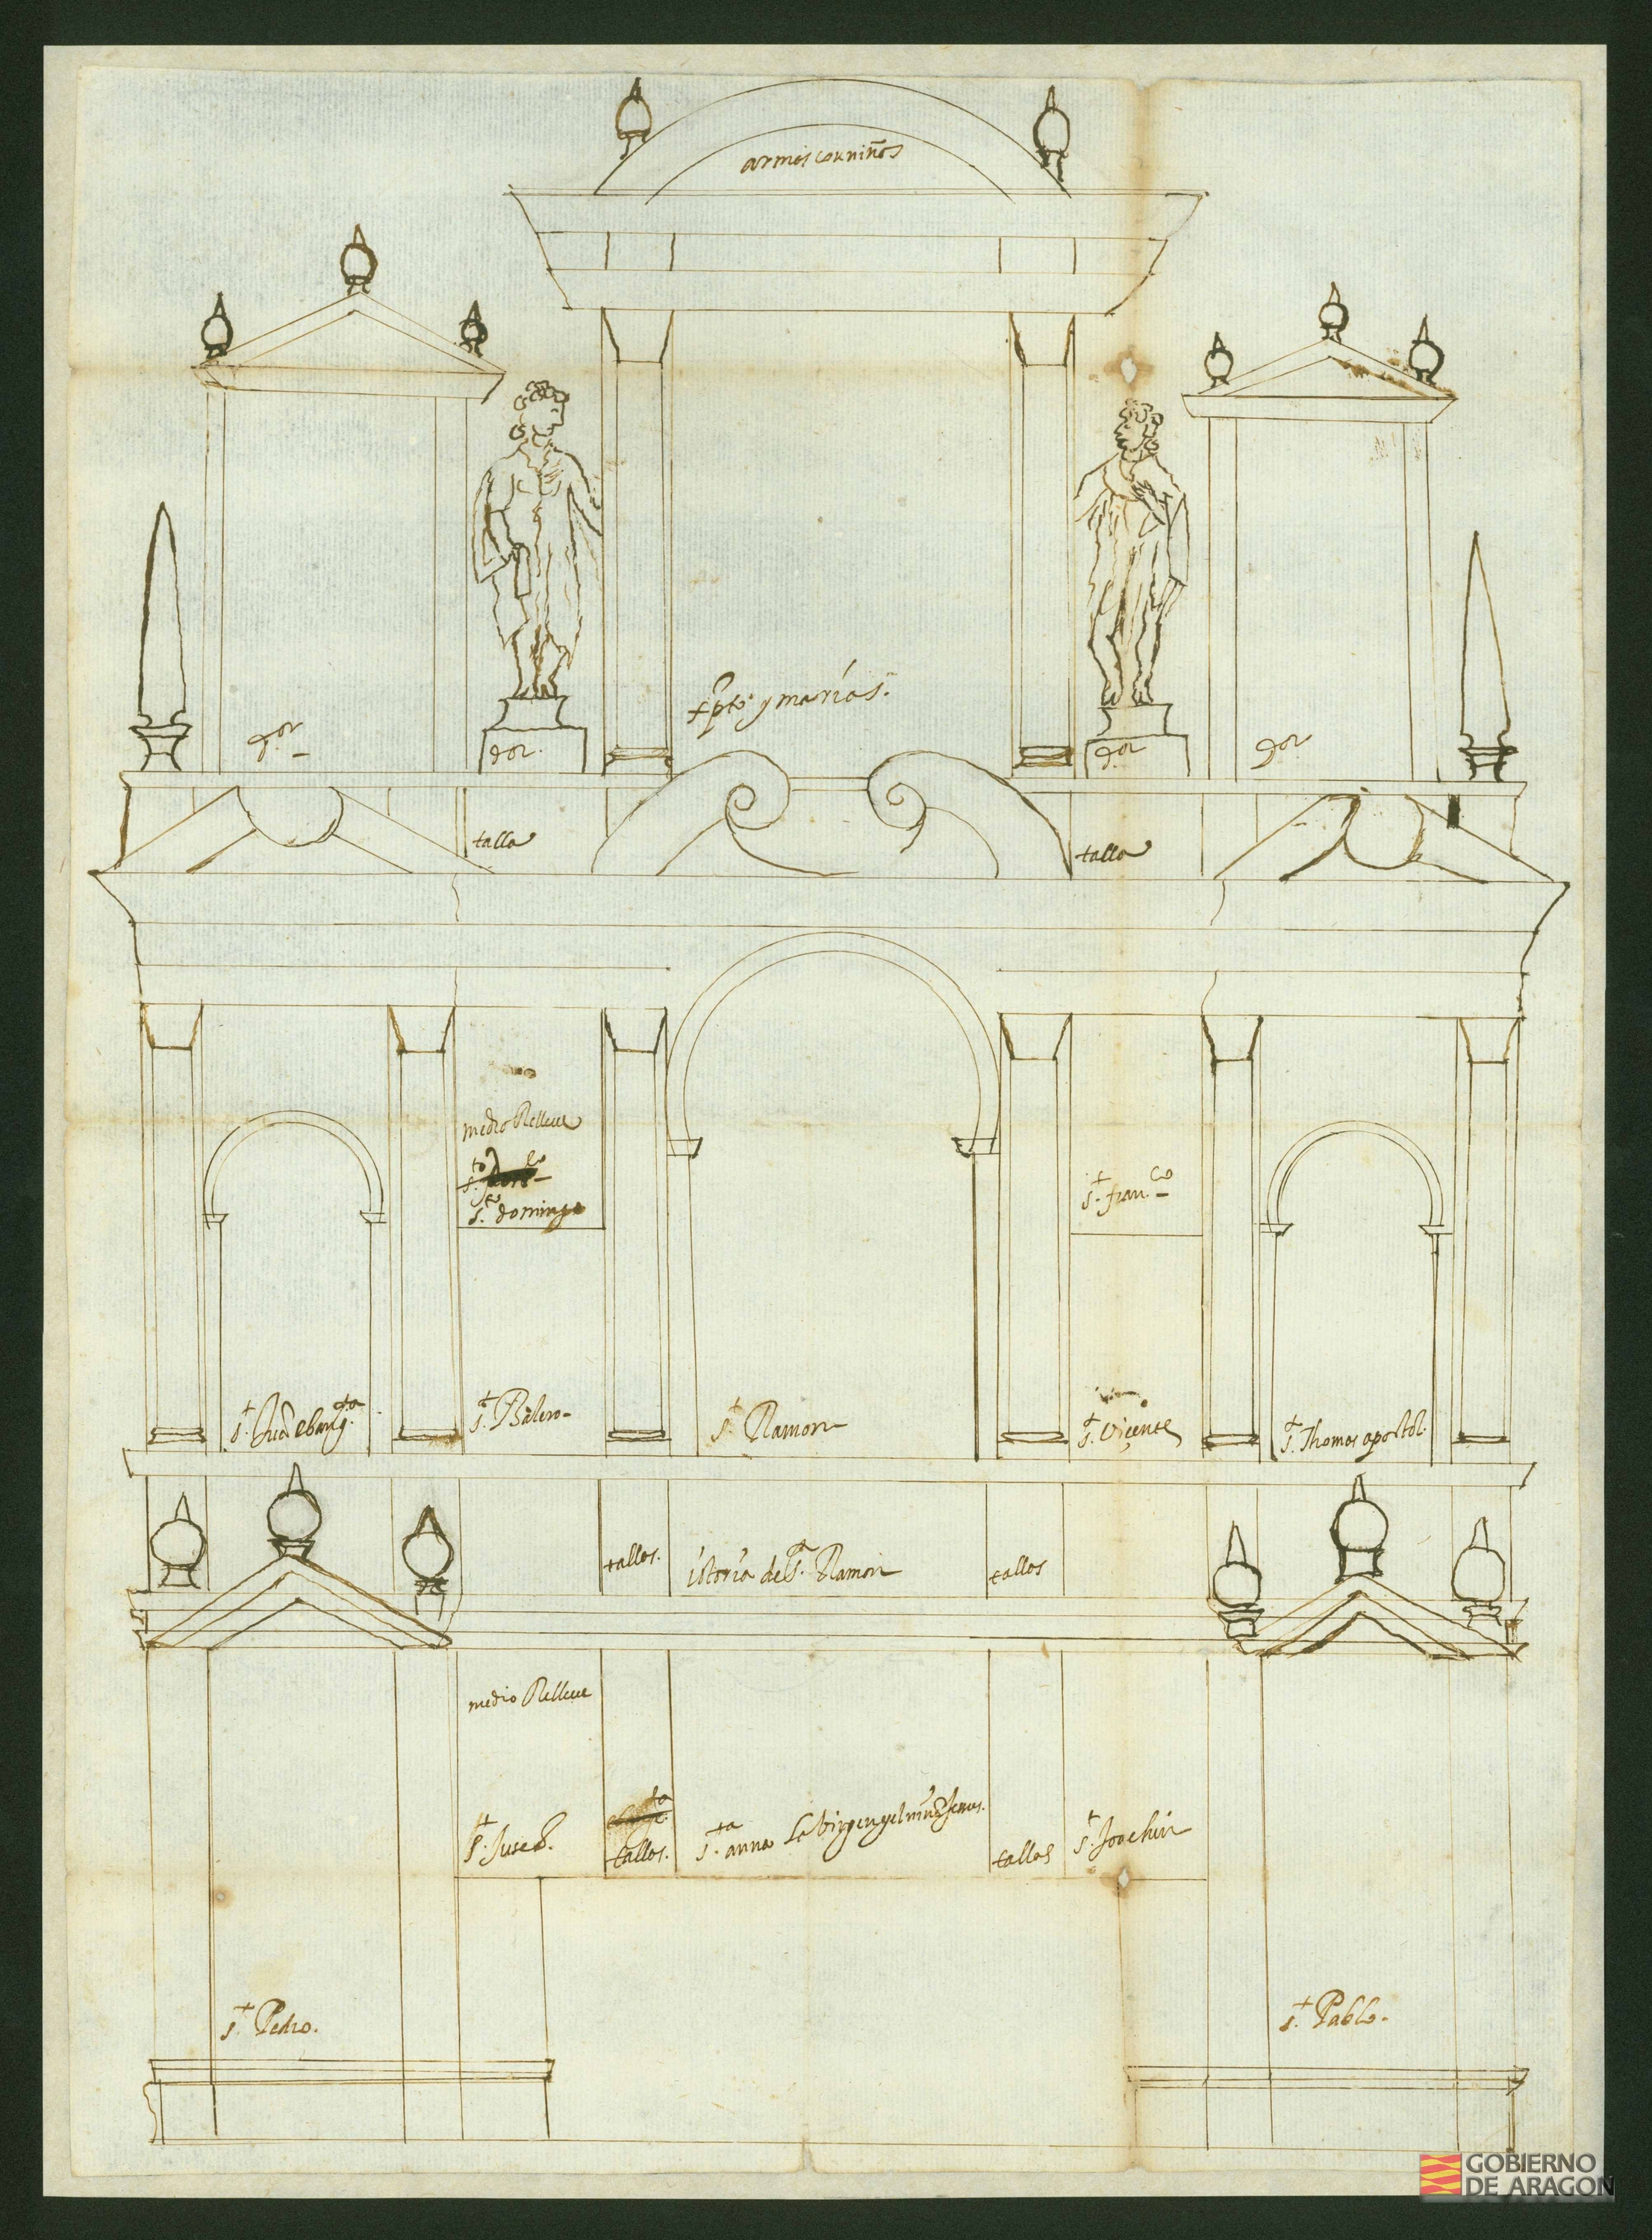 armas con niños
xpto y marias.
dor
dor.
dor
dor
talla
talla
medio Relleue
sto
sto domingo
st franco
st Juā ebangta
st Balero
st Ramon
st Viçente
st Thomas apostol.
tallos.
istoria de st Ramon
tallos
medio Relleue
st Jusep.
tallos.
sta anna La birgen y el niño Jesus.
tallos
st Joachin
st Pedro.
st Pablo.
GOBIERNO
DE ARAGON